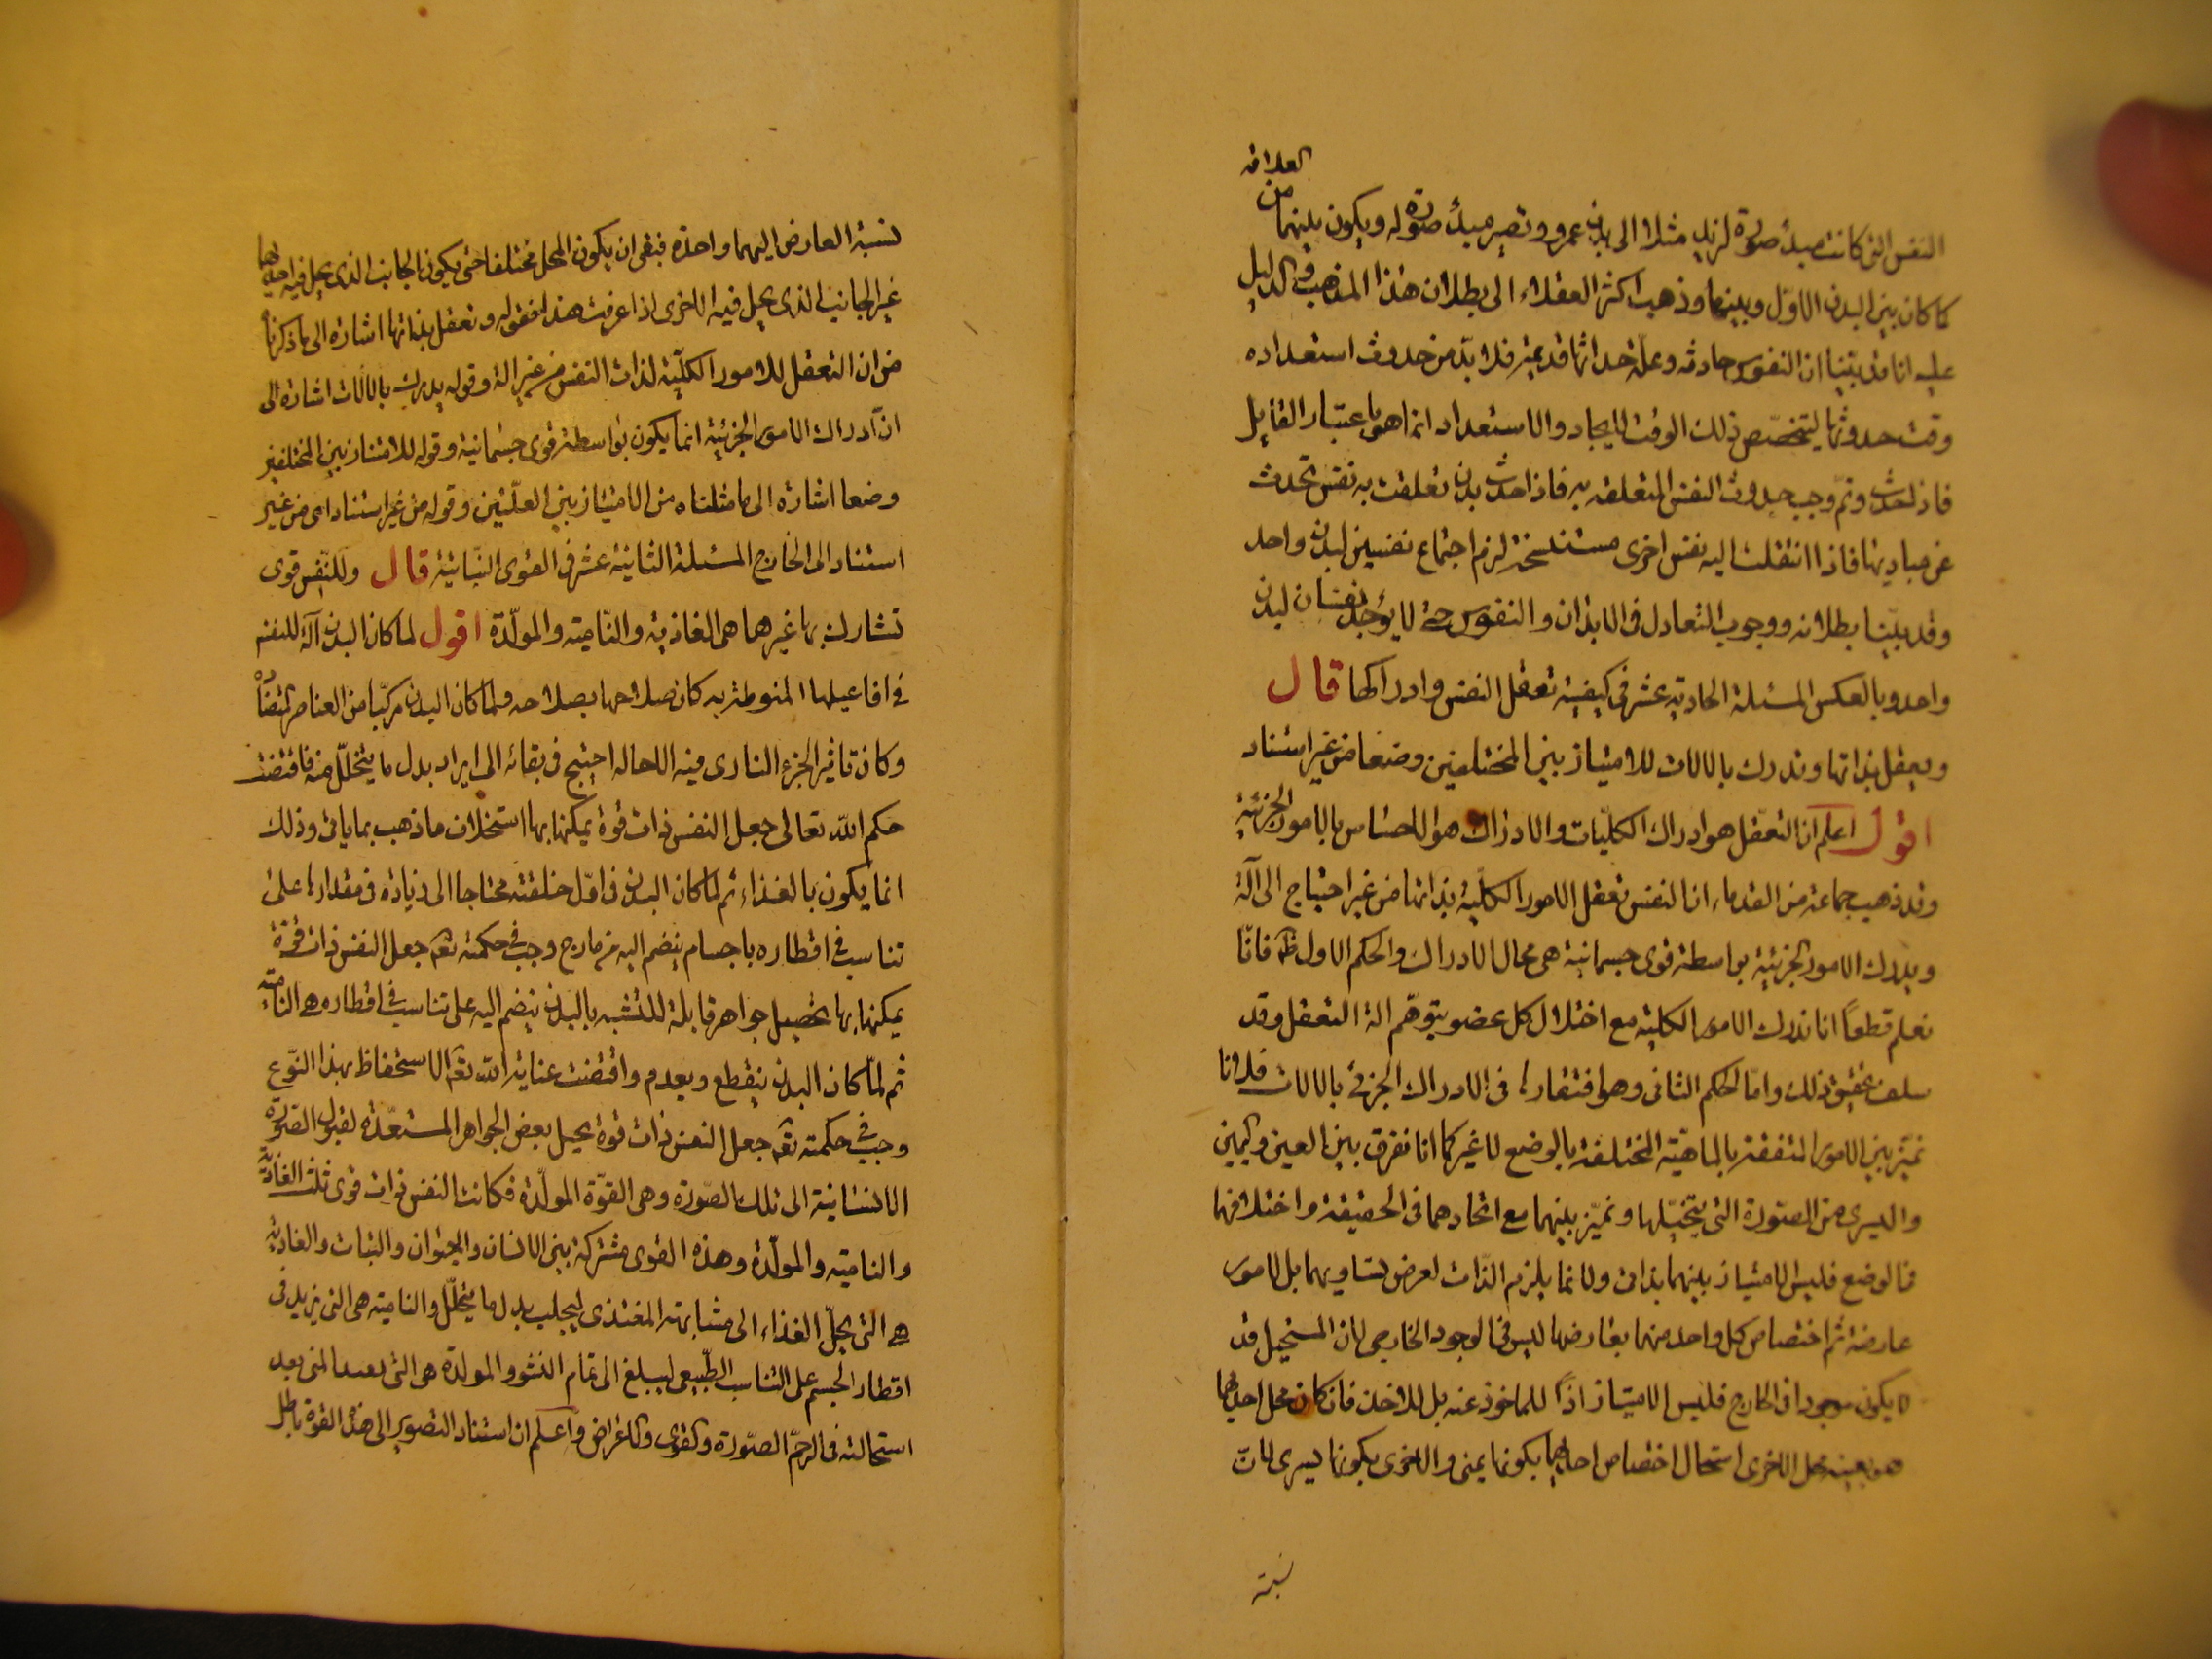 العلاقة
النفس التى كانت مبدأ صورة لزيد مثلا الى بدن عمرو وتصير مبدأ صورة له ويكون بينهما من
كما كان بين البدن الاوّل وبينها وذهب اكثر العقلاء الى بطلان هذا المذهب والدليل
عليه انا قد بيّنا ان النفوس حادثه وعلّة حداثها قديمة فلا بدّ من حدوث استعداده
وقت حدوثها ليتخصّص ذلك الوقت بالايجاد والاستعداد انما هو باعتبار القابل
فاذا حدث وتمّ وجب حدوث النفس المتعلقه به فاذا حدث بدن تعلقت به نفس تحدث
عن مباديها فاذا انتقلت اليه نفس اخرى مستنسخة لزم اجتماع نفسين لبدن واحد
وقد بيّنا بطلانه ووجوب التعادل فى الابدان والنفوس حتى لا يوجد نفسان لبدن
واحد وبالعكس المسئلة الحادية عشر فى كيفية تعقل النفس وادراكها قال
ويعقل بذاتها وتدرك بالالات للامتياز بين المختلفين وضعا من غير استناد
اقول اعلم ان التعقّل هو ادراك الكليّات والادراك هو الاحساس بالامور الجزئية
وقد ذهب جماعة من القدماء ان النفس تعقل الامور الكلّية بذاتها من غير احتياج الى آلة
ويدرك الامور الجزئية بواسطة قوى جسمانية هى محال الادراك والحكم الاول ظ فانّا
نعلم قطعاً انا ندرك الامور الكلية مع اختلال كل عضو يتوهّم الة التعقل وقد
سلف تحقيق ذلك وامّا الحكم الثانى وهو افتقارها فى الادراك الجزئى بالالات فلانا
نميّز بين الامور المتفقة بالماهيّة المختلفة بالوضع لا غير كما انا نفرق بين العين اليمين
واليسرى من الصورة التى يتخيّلها ونميّز بينهما مع اتحادهما فى الحقيقة واختلافهما
فى الوضع فليس الامتياز بينهما بذاتى ولا بما يلزم الذات لعرض تساويهما بل لامور
عارضة ثم اختصاص كل واحد منهما بعارضها ليس فى الوجود الخارجى لان المتخيل قد
لا يكون موجودا فى الخارج فليس الامتياز اذاً للماخوذ عنه بل للاخذ فان كان محل احديهما
هو بعينه محل الاخرى استحال اختصاص احديهما بكونها يمنى والاخرى بكونها يسرى لان
نسبة
نسبة العارض اليهما واحدة فبقى ان يكون المحل مختلفا حتى يكون الجانب الذى يحل فيه احديهما
غير الجانب الذى يحل فيه الاخرى اذا عرفت هذا فقوله وتعقل بذاتها اشارة الى ما ذكرنا
من ان التعقل للامور الكلّية لذات النفس من غير الة وقوله يدرك بالالات اشارة الى
انّ ادراك الامور الجزئية انما يكون بواسطة قوى جسمانية وقوله للامتياز بين المختلفين
وضعا اشارة الى ما مثلناه من الامتياز بين العلّتين وقوله من غير استناد اى من غير
استناد الى الخارج المسئلة الثانية عشر فى القوى النّباتية قال وللنفس قوى
تشارك بها غيرها هى الغاذية والنّامية والمولّدة اقول لما كان البدن آلة للنفس
فى افاعيلها المنوطة به كان صلاحها بصلاحه ولما كان البدن مركبّا من العناصر المتضادة
وكان تاثير الجزء النارى فيه الاحاله احتيج فى بقائه الى ايراد بدل ما يتحلّل منه فاقتضت
حكم اللّه تعالى جعل النفس ذات قوة يمكنها بها استخلاف ما ذهب بما ياتى وذلك
انما يكون بالغذاء ثم لما كان البدن فى اوّل خلقته محتاجا الى زيادة فى مقداره على
تناسب فى اقطاره باجسام ينضم اليه من خارج وجب فى حكمته تع جعل النفس ذات قوة
يمكنها بها تحصيل جواهر قابلة للتشبه بالبدن ينضم اليه على تناسب فى اقطاره هى النامية
ثم لمّا كان البدن ينقطع ويعدم واقتضت عناية اللّه تع الاستحفاظ بهذا النّوع
وجب فى حكمته تع جعل النفس ذات قوة يحيل بعض الجواهر المستعدّة لقبول الصّورة
الانسانية الى تلك الصّورة وهى القوّة المولّدة فكانت النفس ذات قوى ثلث الغاذية
والنامية والمولّدة وهذه القوى مشتركة بين الانسان والحيوان والنبات والغاذية
هى التى يحلّ الغذاء الى مشابهة المغتذى ليجلب بدل ما يتحلّل والنامية هى التى يزيد فى
اقطار الجسم على التناسب الطّبيعى ليبلغ الى تمام النشو والمولدة هى التى تعيد المنى بعد
استحالته فى الرحمّ الصّورة والقوى والاعراض واعلم ان استناد التصوير الى هذه القوة باطل